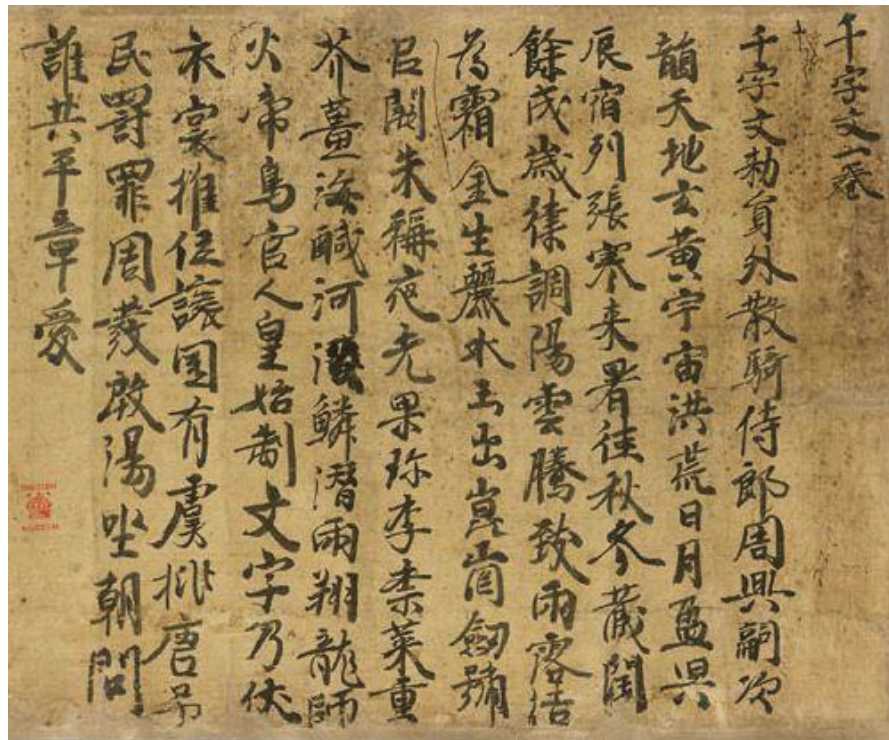 千字文一卷
千字文勅員外散騎侍郎周興嗣次
韻天地玄黃宇宙洪荒日月盈昃
辰宿列張寒来暑往秋冬藏閏
餘成歲律調陽雲騰致雨露結
為霜金生麗水玉出崑崗劒號
巨闕朱稱夜光果珎李柰菜重
芥薑海醎河淡鱗潛羽翔龍師
火帝鳥官人皇始制文字乃伏
衣裳推位讓国有虞桃唐弔
民罸罪周發啟湯坐朝問
誰共平章愛
BRITISH
MUSEUM